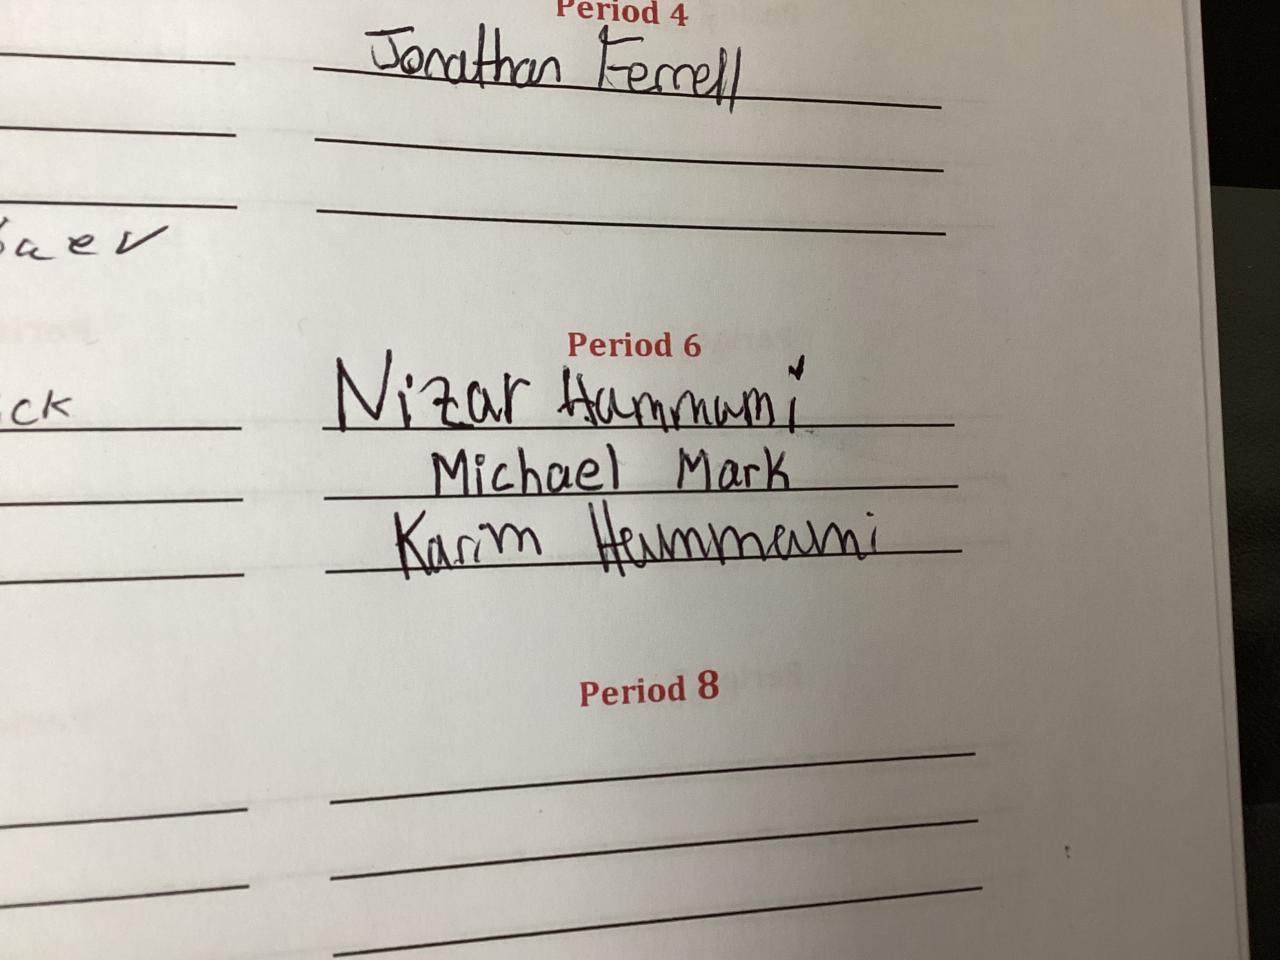 Period 4
Jonathan Ferrell
Period 6
Nizar Hammami
Michael Mark
Karim Hammami
Period 8